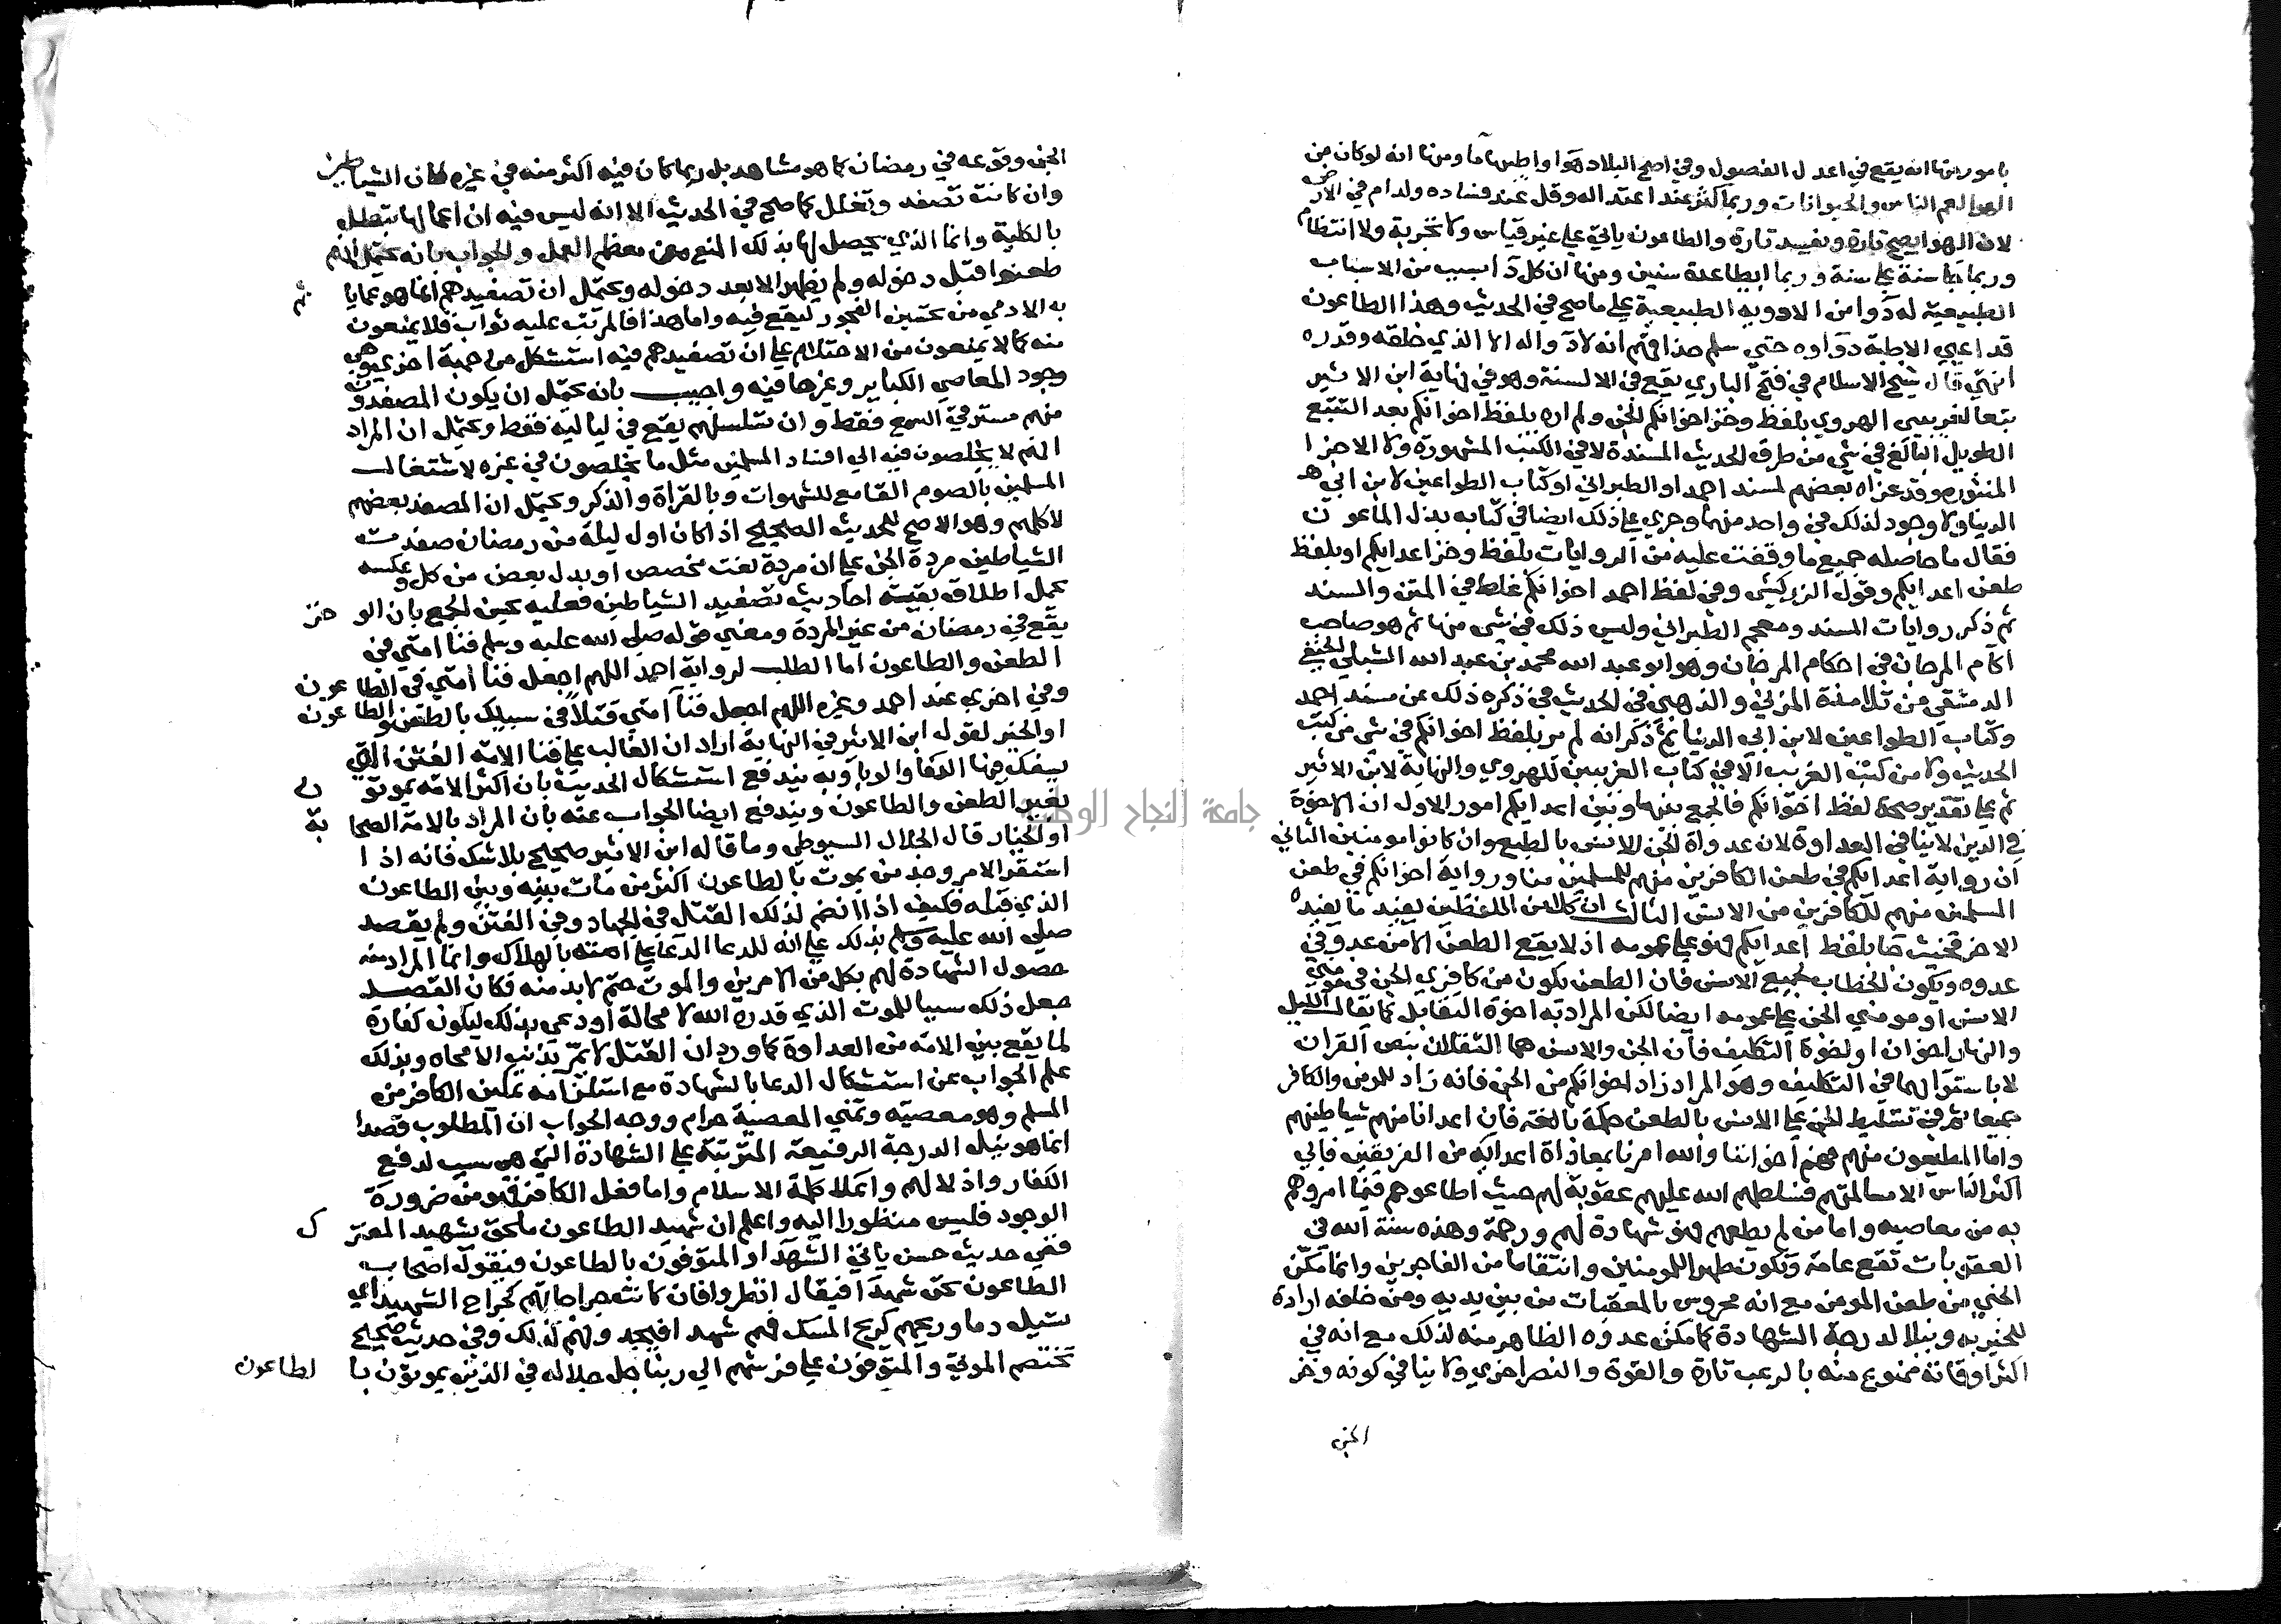 بامور منها انه يقع في اعدل الفصول وفي اصح البلاد هواء واطيبها ماء ومنها انه لو كان من
الهوا لعم الناس والحيوانات وربما كثر عند اعتداله وقل عند فساده ولدام في الارض
لان الهوا يصح تارة ويفسد تارة والطاعون ياتي علي غير قياس ولا تجربة ولا انتظام
وربما جا سنة علي سنة وربما ابطا عدة سنين ومنها ان كل دآ بسبب من الاسباب
الطبيعية له دوآ من الادوية الطبيعية علي ما صح في الحديث وهذا الطاعون
قد اعيي الاطبة دوآوه حتي سلم حذاقهم انه لا دوآ له الا الذي خلقه وقدره
انتهي قال شيخ الاسلام في فتح الباري يقع في الالسنة وهو في نهاية ابن الاثير
تبعا لغريبي الهروي بلفظ وخز اخوانكم الجن ولم اره بلفظ اخوانكم بعد التتبع
الطويل البالغ في شي من طرق الحديث المسندة لا في الكتب المشهورة ولا الاجزا
المنثورة وقد عزاه بعضهم لمسند احمد او الطبراني او كتاب الطواعين لابن ابي
الدنيا ولا وجود لذلك في واحد منها وجري علي ذلك ايضا في كتابه بذل الماعون
فقال ما حاصله جميع ما وقفت عليه من الروايات بلفظ وخز اعدايكم او بلفظ
طعن اعدايكم وقول الزركشي وفي لفظ احمد اخوانكم غلط في المتن والسند
ثم ذكر روايات المسند ومعجم الطبراني وليس ذلك في شي منها ثم هو صاحب
آكام المرجان في احكام الجان وهو ابو عبد الله محمد بن عبد الله الشبلي الحنفي
الدمشقي من تلامذة المزي والذهبي في الحديث في ذكره ذلك عن مسند احمد
وكتاب الطواعين لابن ابي الدنيا ثم ذكر انه لم ير بلفظ اخوانكم في شي من كتب
الحديث ولا من كتب الغريب الا في كتاب الغريبين للهروي والنهاية لابن الاثير
ثم علي تقدير صحة لفظ اخوانكم فالجمع بينها وبين اعدايكم امور الاول ان الاخوة
في الدين لا ينافي العداوة لان عداوة الجن للانس بالطبع وان كانوا مومنين الثاني
ان رواية اعدايكم في طعن الكافرين منهم للمسلمين منا ورواية اخوانكم في طعن
المسلمين منهم للكافرين من الانس الثالث ان كلا من اللفظين يفيد ما يفيده
الاخر فحيث جا بلفظ اعدايكم فهو علي عمومه اذ لا يقع الطعن الا من عدو في
عدوه ويكون الخطاب لجميع الانس فان الطعن يكون من كافري الجن في مومني
الانس او مومني الجن علي عمومه ايضا لكن المراد به اخوة التقابل كما يقال الليل
والنهار اخوان او اخوة التكليف فان الجن والانس هما الثقلان بنص القران
لا باستوآ لهما في التكليف وهو المراد زاد اخوانكم من الجن فانه زاد للمومن والكافر
جميعا ثم في تسليط الجن علي الانس بالطعن حكمة بالغة فان اعدانا منهم شياطينهم
واما المطيعون منهم فهم اخواننا والله امرنا بمعاداة اعدايه من الفريقين فابي
اكثر الناس الا مسالمتهم فسلطهم الله عليهم عقوبة لهم حيث اطاعوهم فيما امروهم
به من معاصيه واما من لم يطعهم فهو شهادة لهم ورحمة وهذه سنة الله في
العقوبات تقع عامة وتكون طهرا للمومنين وانتقاما من الفاجرين وانما مكن
الجني من طعن المومن مع انه محروس بالمعقبات من بين يديه ومن خلفه ارادة
للخير به ونيلا لدرجة الشهادة كما مكن عدوه الظاهر منه لذلك مع انه في
اكثر اوقاته ممنوع منه بالرعب تارة والقوة والنصر اخري ولا ينافي كونه وخز
الجن
الجن وقوعه في رمضان كما هو مشاهد بل ربما كان فيه اكثر منه في غيره لان الشياطين
وان كانت تصفد وتغلل كما صح في الحديث الا انه ليس فيه ان اعمالها تبطل
بالكلية وانما الذي يحصل لها بذلك المنع من معظم العمل والجواب بانه يحتمل انهم
طعنوا قبل دخوله ولم يظهر الا بعد دخوله ويحتمل ان تصفيدهم انما هو عما ياثم
به الادمي من تحسين الفجور ليقع فيه واما هذا فالمرتب عليه ثواب فلا يمنعون
منه كما لا يمنعون من الاحتلام علي ان تصفيدهم فيه استشكل من جهة اخري وهي
وجود المعاصي الكباير وغيرها فيه واجيب بانه يحتمل ان يكون المصفدون
منهم مسترقي السمع فقط وان تسلسلهم يقع في لياليه فقط ويحتمل ان المراد
انهم لا يخلصون فيه الي افساد المسلمين مثل ما يخلصون في غيره لاشتغال
المسلمين بالصوم القامع للشهوات وبالقراة والذكر ويحتمل ان المصفد بعضهم
لا كلهم وهو الاصح للحديث الصحيح اذا كان اول ليلة من رمضان صفدت
الشياطين مردة الجن علي ان مردة نعت مخصص او بدل بعض من كل وعكسه
يحمل اطلاق بقيته احاديث تصفيد الشياطين فعليه يحسن الجمع بان الوخز
يقع في رمضان من غير المردة ومعني قوله صلي الله عليه وسلم فنا امتي في
الطعن والطاعون اما الطلب لرواية احمد اللهم اجعل فنا امتي في الطاعون
وفي اخري عند احمد وغيره اللهم اجعل فنآ امتي قتلاً في سبيلك بالطعن والطاعون
او الخبر لقول ابن الاثير في النهاية اراد ان الغالب علي فنا الامة الفتن التي
يسفك فيها الدما والوباء وبه يندفع استشكال الحديث بان اكثر الامة يموتون
بغير الطعن والطاعون ويندفع ايضا الجواب عنه بان المراد بالامة الصحابة
او الخيار قال الجلال السيوطي وما قاله ابن الاثير صحيح بلا شك فانه اذا
استقر الامر وجد من يموت بالطاعون اكثر من مات بينه وبين الطاعون
الذي قبله فكيف اذا انضم لذلك القتل في الجهاد وفي الفتن ولم يقصد
صلي الله عليه وسلم بذلك علي انه للدعا الدعا علي امته بالهلاك وانما المراد منه
حصول الشهادة لهم بكل من الامرين والموت حتم لا بد منه فكان القصد
جعل ذلك سببا للموت الذي قدره الله لا محالة او دعي بذلك ليكون كفارة
لما يقع بين الامة من العداوة كما ورد ان القتل لا يمر بذنب الا محاه وبذلك
علم الجواب عن استشكال الدعا بالشهادة مع استلزامه تمكين الكافر من
المسلم وهو معصية وتمني المعصية حرام ووجه الجواب ان المطلوب قصدا
انما هو نيل الدرجة الرفيعة المترتبة علي الشهادة التي هي سبب لدفع
الكفار واذلالهم واعلا كلمة الاسلام واما فعل الكافر فهو من ضرورة
الوجود فليس منظورا اليه واعلم ان شهيد الطاعون ملحق بشهيد المعترك
ففي حديث حسن ياتي الشهدآ والمتوفون بالطاعون فيقول اصحاب
الطاعون نحن شهدآ فيقال انظروا فان كانت جراحاتهم كجراح الشهيد اي
تسيل دما وريحهم كريح المسك فهم شهدا فيجدونهم كذلك وفي حديث صحيح
تختصم الموتي والمتوفون علي فرشهم الي ربنا جل جلاله في الذين يموتون بالطاعون
جامعة النجاح الوطنية